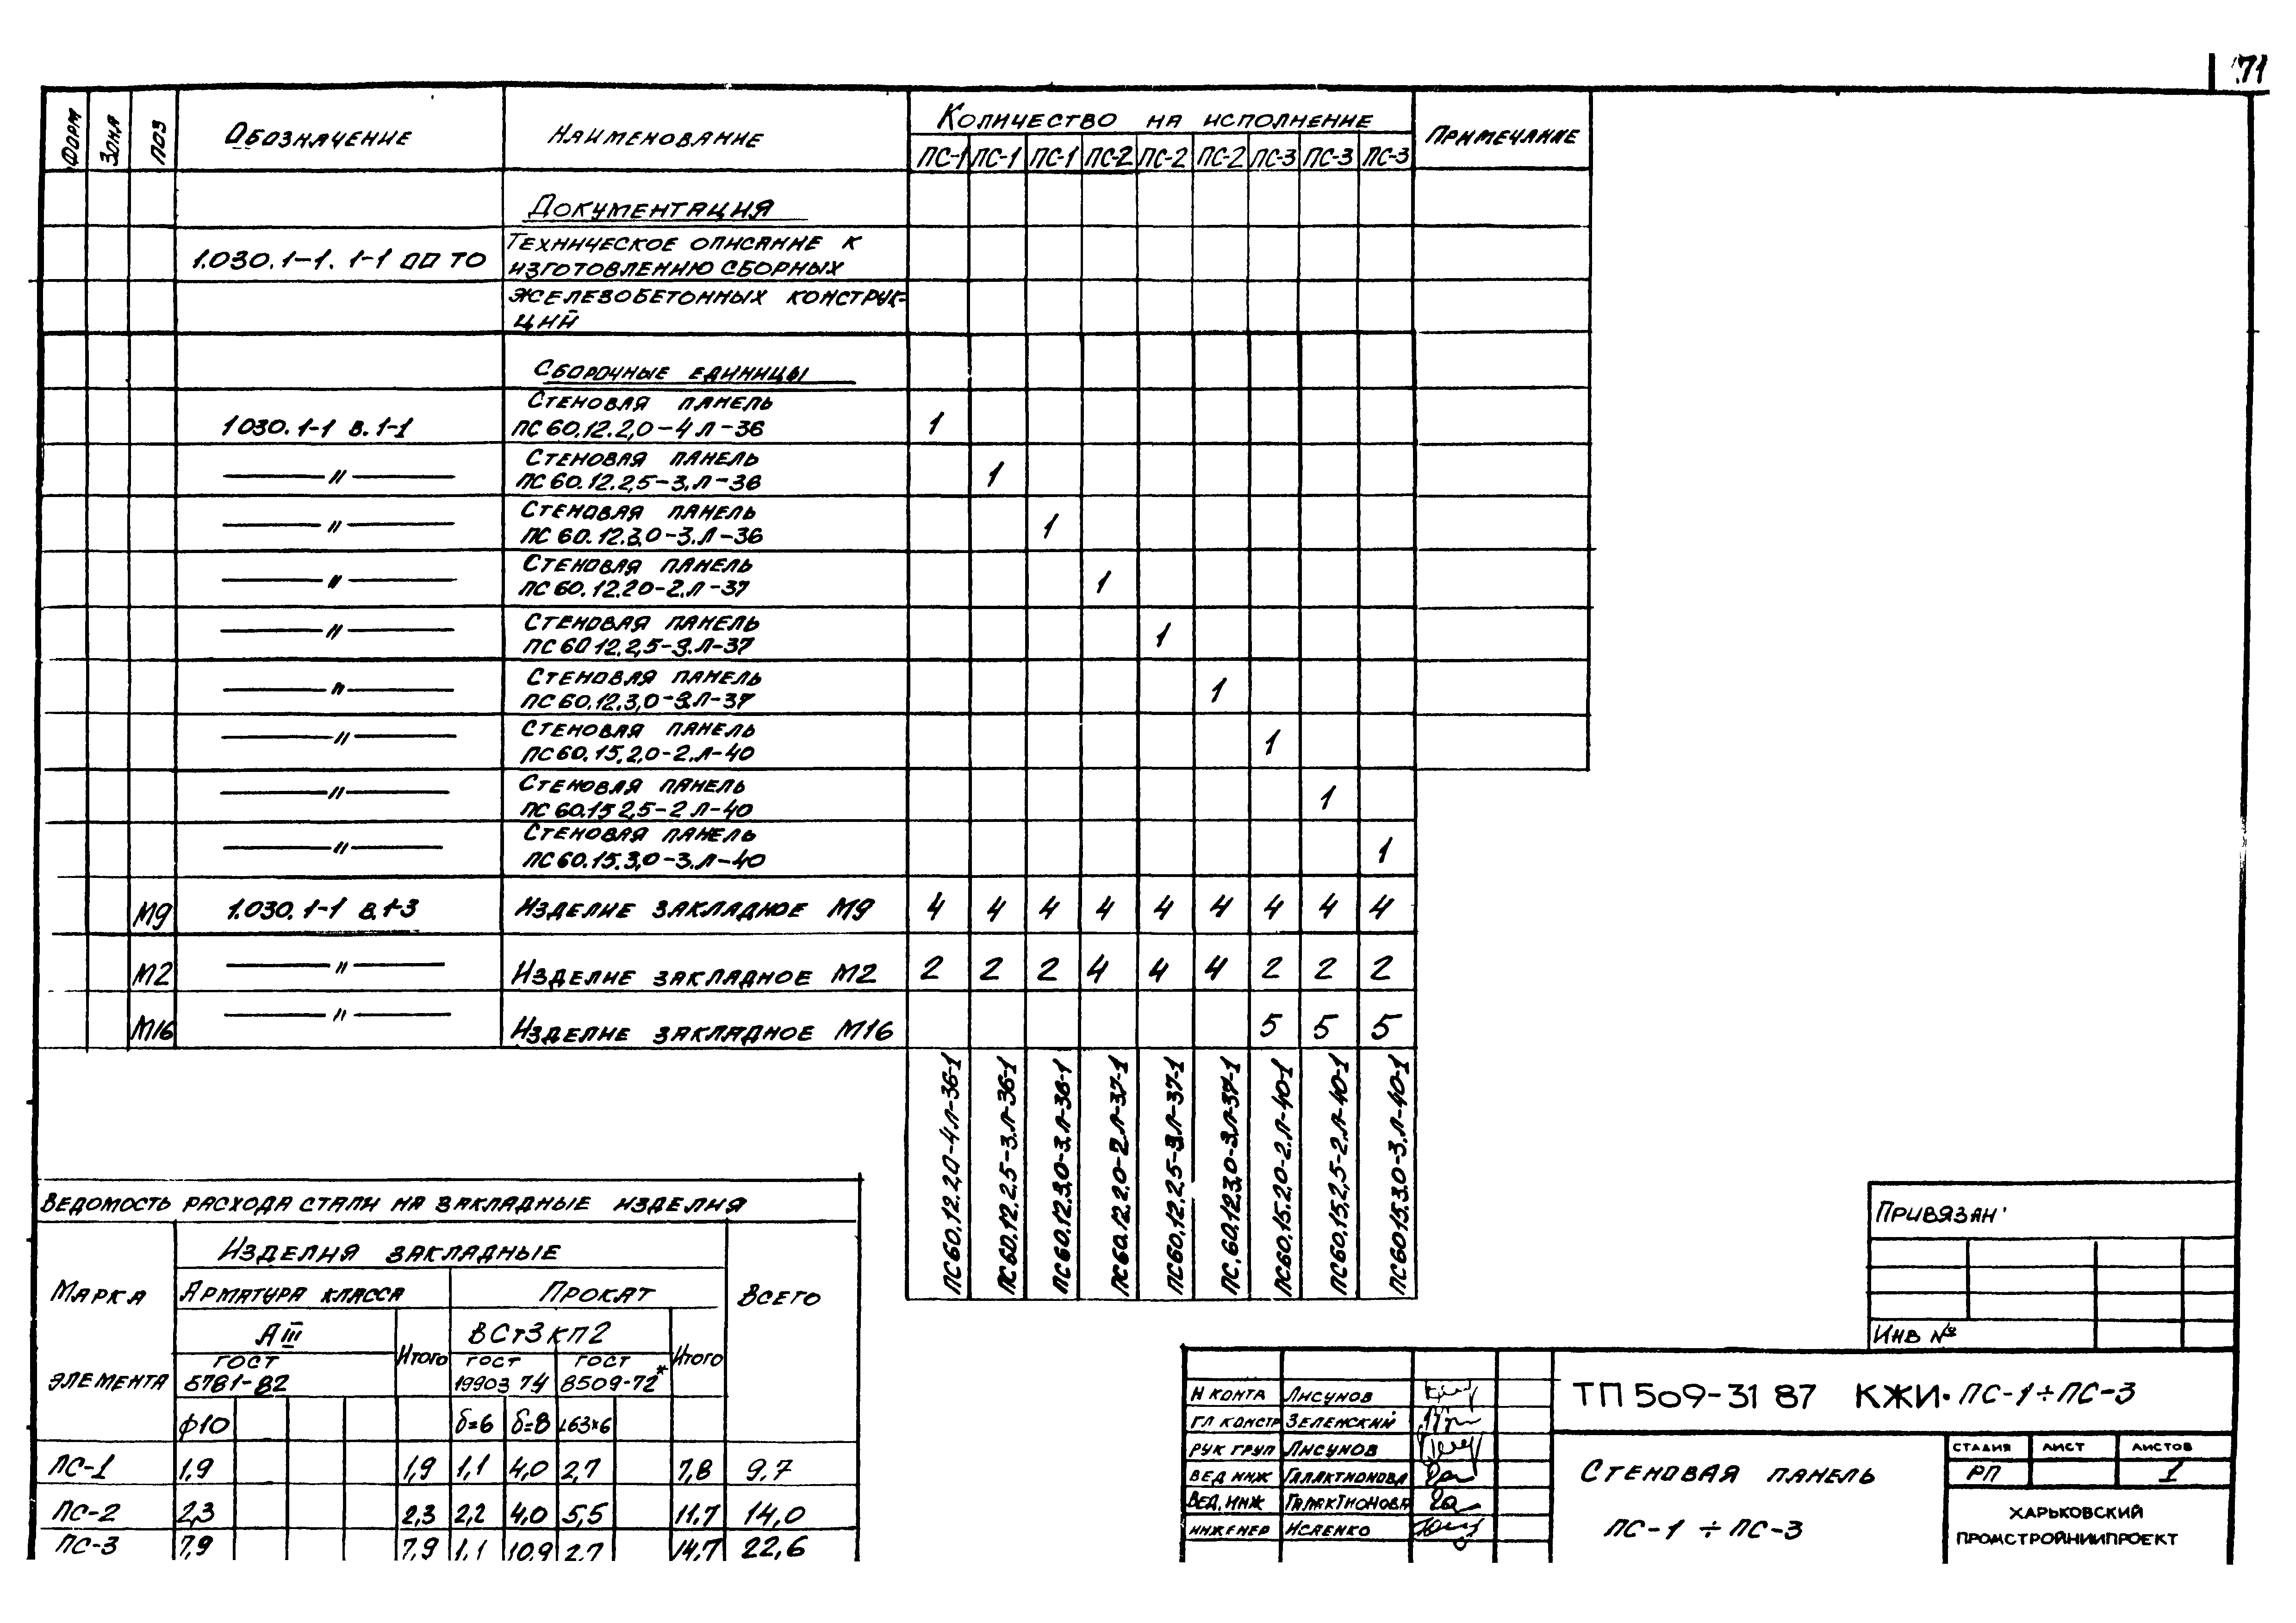 71
ФОРМ ЗОНА ПОЗ ОБОЗНАЧЕНИЕ НАИМЕНОВАНИЕ КОЛИЧЕСТВО НА ИСПОЛНЕНИЕ ПРИМЕЧАНИЕ
ПС-1 ПС-1 ПС-1 ПС-2 ПС-2 ПС-2 ПС-3 ПС-3 ПС-3
ДОКУМЕНТАЦИЯ
1.030.1-1. 1-1 00 ТО ТЕХНИЧЕСКОЕ ОПИСАНИЕ К
ИЗГОТОВЛЕНИЮ СБОРНЫХ
ЖЕЛЕЗОБЕТОННЫХ КОНСТРУК-
ЦИЙ
СБОРОЧНЫЕ ЕДИНИЦЫ
СТЕНОВАЯ ПАНЕЛЬ
1030.1-1 В.1-1 ПС60.12.2,0-4Л-36 1
СТЕНОВАЯ ПАНЕЛЬ
—〃— ПС60.12.2,5-3.Л-36 1
СТЕНОВАЯ ПАНЕЛЬ
—〃— ПС 60.12.3,0-3.Л-36 1
СТЕНОВАЯ ПАНЕЛЬ
—〃— ПС 60.12.20-2.Л-37 1
СТЕНОВАЯ ПАНЕЛЬ
—〃— ПС 60 12.2,5-3.Л-37 1
СТЕНОВАЯ ПАНЕЛЬ
—〃— ПС 60.12.3,0-3.Л-37 1
СТЕНОВАЯ ПАНЕЛЬ
—〃— ПС60.15.2,0-2.Л-40 1
СТЕНОВАЯ ПАНЕЛЬ
—〃— ПС 60.15 2,5-2 Л-40 1
СТЕНОВАЯ ПАНЕЛЬ
—〃— ПС60.15.3,0-3.Л-40 1
М9 1.030.1-1 В.1-3 ИЗДЕЛИЕ ЗАКЛАДНОЕ М9 4 4 4 4 4 4 4 4 4
М2 —〃— ИЗДЕЛИЕ ЗАКЛАДНОЕ М2 2 2 2 4 4 4 2 2 2
М16 —〃— ИЗДЕЛИЕ ЗАКЛАДНОЕ М16 5 5 5
ПС60.12.2,0-4Л-36-1
ПС60.12.2.5-3.Л-36-1
ПС60.12.3,0-3.Л-36-1
ПС60.12.2.0-2.Л-37-1
ПС60.12.2,5-3.Л-37-1
ПС.60.12.3,0-3.Л-37-1
ПС60.15.2.0-2.Л-40-1
ПС60.15.2,5-2.Л-40-1
ПС60 15.3.0-3.Л-40-1
ВЕДОМОСТЬ РАСХОДА СТАЛИ НА ЗАКЛАДНЫЕ ИЗДЕЛИЯ
МАРКА ЭЛЕМЕНТА ИЗДЕЛИЯ ЗАКЛАДНЫЕ ВСЕГО
АРМАТУРА КЛАССА ПРОКАТ
АIII ИТОГО ВСт3кп2 ИТОГО
ГОСТ ГОСТ ГОСТ
5781-82 19903 74 8509-72*
ф10 δ=6 δ=8 L63×6
ПС-1 1,9 1,9 1,1 4,0 2,7 7,8 9,7
ПС-2 2,3 2,3 2,2 4,0 5,5 11,7 14,0
ПС-3 7,9 7,9 1,1 10,9 2,7 14,7 22,6
ПРИВЯЗАН
ИНВ №
Н КОНТА ЛИСУНОВ
ГЛ КОНСТР ЗЕЛЕНСКИЙ
РУК ГРУП ЛИСУНОВ
ВЕД ИНЖ ГАЛАКТИОНОВА
ВЕД. ИНЖ ГАЛАКТИОНОВА
ИНЖЕНЕР ИСАЕНКО
ТП 509-31 87 КЖИ. ПС-1÷ПС-3
СТЕНОВАЯ ПАНЕЛЬ
ПС-1 ÷ ПС-3
СТАДИЯ ЛИСТ ЛИСТОВ
РП 1
ХАРЬКОВСКИЙ
ПРОМСТРОЙНИИПРОЕКТ